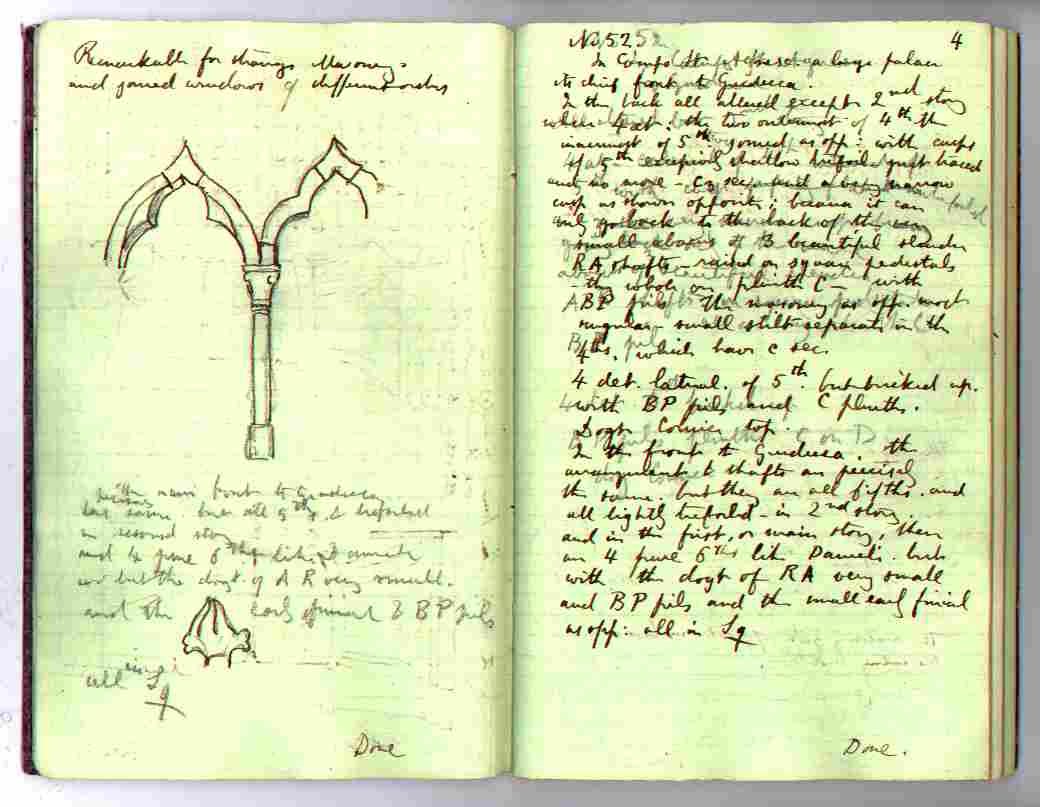 Remarkable for strange Masonry -
and joined windows of different orders
main front to Giudecca
has same but all 5ths & trefoiled
in second story
and 4 pure 6ths like Danieli
but the dogt. of A R very small.
and the early finial & B P pils
all in Sq
Done
No 52 52
4
In Campo a large palace
its chief front to Giudecca.
In the back all altered except 2nd story
where 4 at : the two outermost of 4th the
innermost of 5th. joined as opp : with cusps
of 5th excepting shallow trefoil just traced
and no more - C sec and a very narrow
cusp as shown opposite ; because it can
only go back to the back of the very
small abacus of 3 beautiful slender
RA shafts - raised on square pedestals
- the whole on plinth C - with
ABP pils. The masonry as opp. most
singular - small stilt separate in the
4ths. which have c sec.
4 det. lateral. of 5th. but bricked up.
with BP pils and C plinths.
Dogt Cornice top.
In the front to Giudecca. the
arrangement & shafts are precisely
the same. but they are all fifths. and
all lightly trefoiled - in 2nd story.
and in the first, or main story, there
are 4 pure 6ths like Danieli. but
with the dogt of RA very small
and BP pils and the small early finial
as opp : all in Sq
Done.